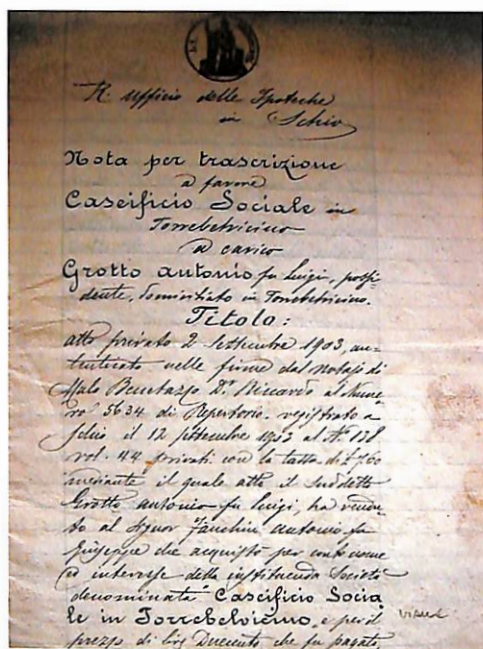 R. Ufficio delle Ipoteche
in Schio
Nota per trascrizione
a favore
Caseificio Sociale in
Torrebelvicino
a carico
Grotto Antonio fu Luigi, possi-
dente, domiciliato in Torrebelvicino.
Titolo:
atto privato 2 Settembre 1903, au-
tenticato nelle firme dal notajo di
Malo Dr Riccardo al Nume-
ro 5634 di Repertorio. registrato a
Schio il 12 Settembre 1903 al N. 138
vol. 44 privati con la tassa di £
mediante il quale atto il suddetto
Grotto Antonio fu Luigi, ha vendu-
to al Signor Antonio fu
Giuseppe che acquistò per conto nome
ed interesse della instituenda Società
denominata Caseificio Socia
le in Torrebelvicino, e per il
prezzo di lire Duecento che fu pagato,